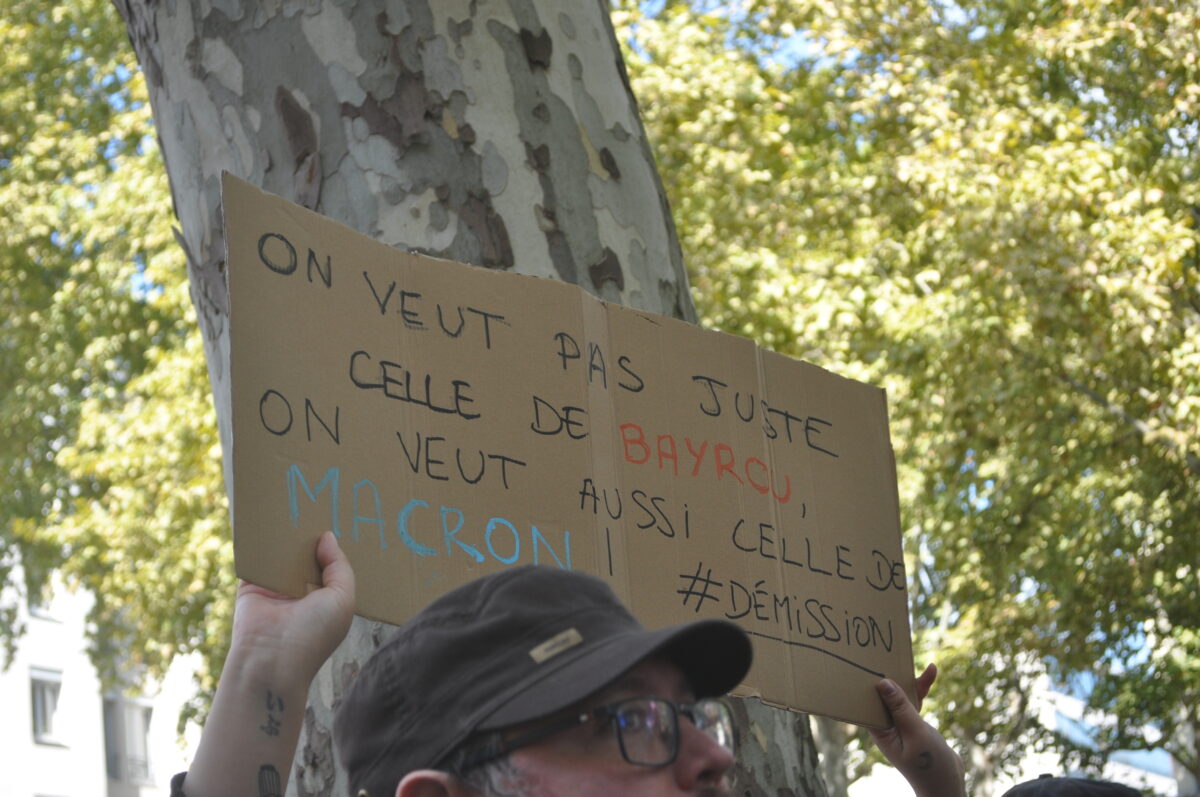 ON VEUT PAS JUSTE
CELLE DE BAYROU,
ON VEUT AUSSI CELLE DE
MACRON !
#DÉMISSION